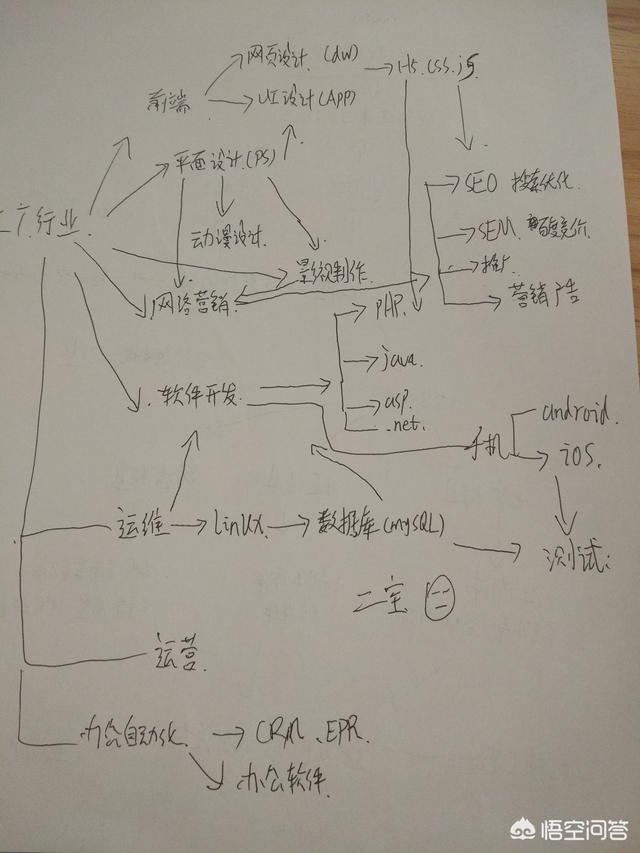 网页设计 (dw)
H5.CSS.js
前端
UI设计(APP)
平面设计(PS)
SEO 搜索优化
行业
动漫设计
SEM 百度竞价
影视制作
推广
网络营销
营销广告
PHP
java
软件开发
asp
.net
手机
android
iOS
运维
linux
数据库(mySQL)
测试
二宝 二
运营
办公自动化
CRM、EPR
办公软件
悟空问答